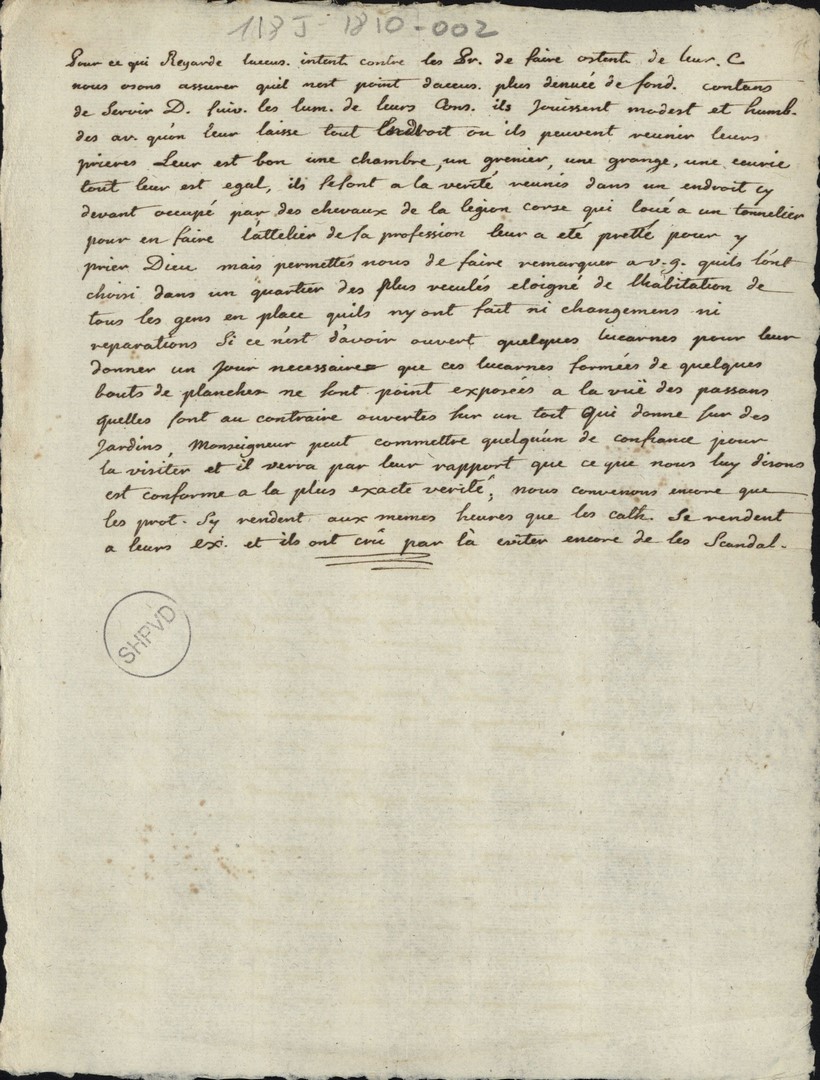 118 J - 1810 - 002
Pour ce qui Regarde laccus. intent. contre les Pr. de faire ostent. de leur. C
nous osons assurer quil nest point daccus. plus denuée de fond. contans
de Servir D. suiv. les lum. de leurs Cons. ils Jouissent modest et humb.
des av. quon leur laisse tout Endroit ou ils peuvent reunir leurs
prieres Leur est bon une chambre, un grenier, une grange, une ecurie
tout leur est egal, ils se sont a la verité reunis dans un endroit cy
devant occupé par des chevaux de la légion corse qui loué a un tonnelier
pour en faire lattelier de sa profession leur a eté pretté pour y
prier Dieu mais permettés nous de faire remarquer a v. g. quils lont
choisi dans un quartier des plus reculés eloigné de lhabitation de
tous les gens en place quils ny ont fait ni changemens ni
reparations Si ce n'est d'avoir ouvert quelques lucarnes pour leur
donner un Jour necessaire que ces lucarnes formées de quelques
bouts de planches ne sont point exposées a la vuë des passans
quelles sont au contraire ouvertes sur un toit qui donne sur des
Jardins, Monseigneur peut commettre quelqu'un de confiance pour
la visiter et il verra par leur rapport que ce que nous luy disons
est conforme a la plus exacte verité, nous convenons encore que
les prot. Sy rendent aux memes heures que les cath. Se rendent
a leurs ex. et ils ont crû par là eviter encore de les Scandal.
SHPVD